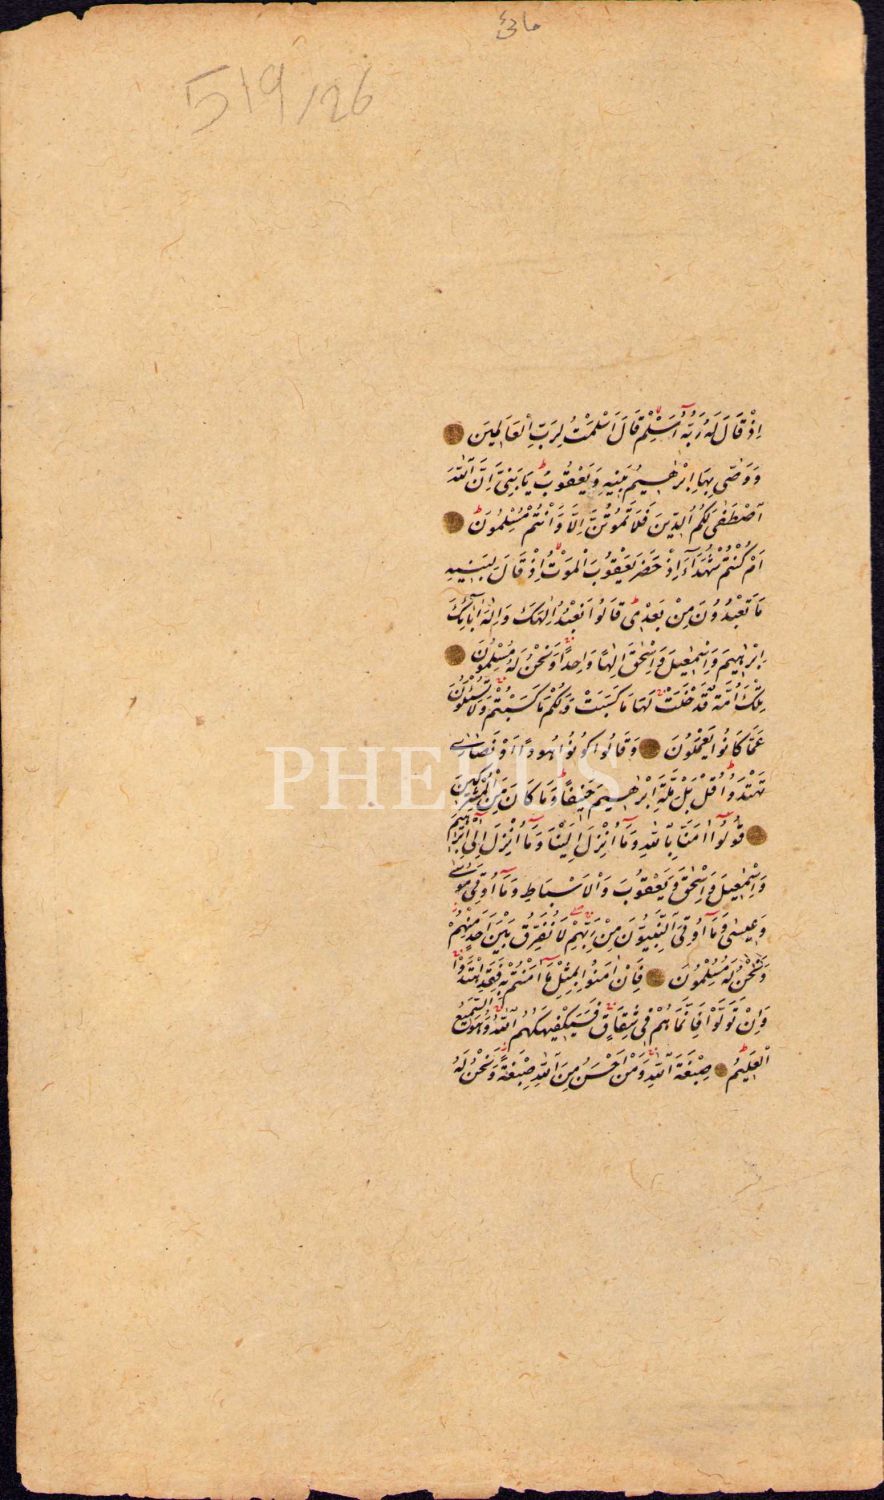 519/26
اِذْ قَالَ لَهُ رَبُّهُ اَسْلِمْ قَالَ اَسْلَمْتُ لِرَبِّ الْعَالَمِينَ
وَوَصّٰى بِهَا اِبْرٰهٖيمُ بَنِيهِ وَيَعْقُوبُ يَا بَنِيَّ اِنَّ اللّٰهَ
اصْطَفٰى لَكُمُ الدِّينَ فَلَا تَمُوتُنَّ اِلَّا وَاَنْتُمْ مُسْلِمُونَ
اَمْ كُنْتُمْ شُهَدَآءَ اِذْ حَضَرَ يَعْقُوبَ الْمَوْتُ اِذْ قَالَ لِبَنِيهِ
مَا تَعْبُدُونَ مِنْ بَعْدِى قَالُوا نَعْبُدُ اِلٰهَكَ وَاِلٰهَ اٰبَآئِكَ
اِبْرٰهٖيمَ وَاِسْمٰعِيلَ وَاِسْحٰقَ اِلٰهًا وَاحِدًا وَنَحْنُ لَهُ مُسْلِمُونَ
تِلْكَ اُمَّةٌ قَدْ خَلَتْ لَهَا مَا كَسَبَتْ وَلَكُمْ مَا كَسَبْتُمْ وَلَا تُسْئَلُونَ
عَمَّا كَانُوا يَعْمَلُونَ وَقَالُوا كُونُوا هُودًا اَوْ نَصَارٰى
تَهْتَدُوا قُلْ بَلْ مِلَّةَ اِبْرٰهٖيمَ حَنِيفًا وَمَا كَانَ مِنَ الْمُشْرِكِينَ
قُولُوا اٰمَنَّا بِاللّٰهِ وَمَآ اُنْزِلَ اِلَيْنَا وَمَآ اُنْزِلَ اِلٰى اِبْرٰهٖيمَ
وَاِسْمٰعِيلَ وَاِسْحٰقَ وَيَعْقُوبَ وَالْاَسْبَاطِ وَمَآ اُوتِىَ مُوسٰى
وَعِيسٰى وَمَآ اُوتِىَ النَّبِيُّونَ مِنْ رَبِّهِمْ لَا نُفَرِّقُ بَيْنَ اَحَدٍ مِنْهُمْ
وَنَحْنُ لَهُ مُسْلِمُونَ فَاِنْ اٰمَنُوا بِمِثْلِ مَآ اٰمَنْتُمْ بِهِ فَقَدِ اهْتَدَوْا
وَاِنْ تَوَلَّوْا فَاِنَّمَا هُمْ فِى شِقَاقٍ فَسَيَكْفِيكَهُمُ اللّٰهُ وَهُوَ السَّمِيعُ
الْعَلِيمُ صِبْغَةَ اللّٰهِ وَمَنْ اَحْسَنُ مِنَ اللّٰهِ صِبْغَةً وَنَحْنُ لَهُ
PHEBUS